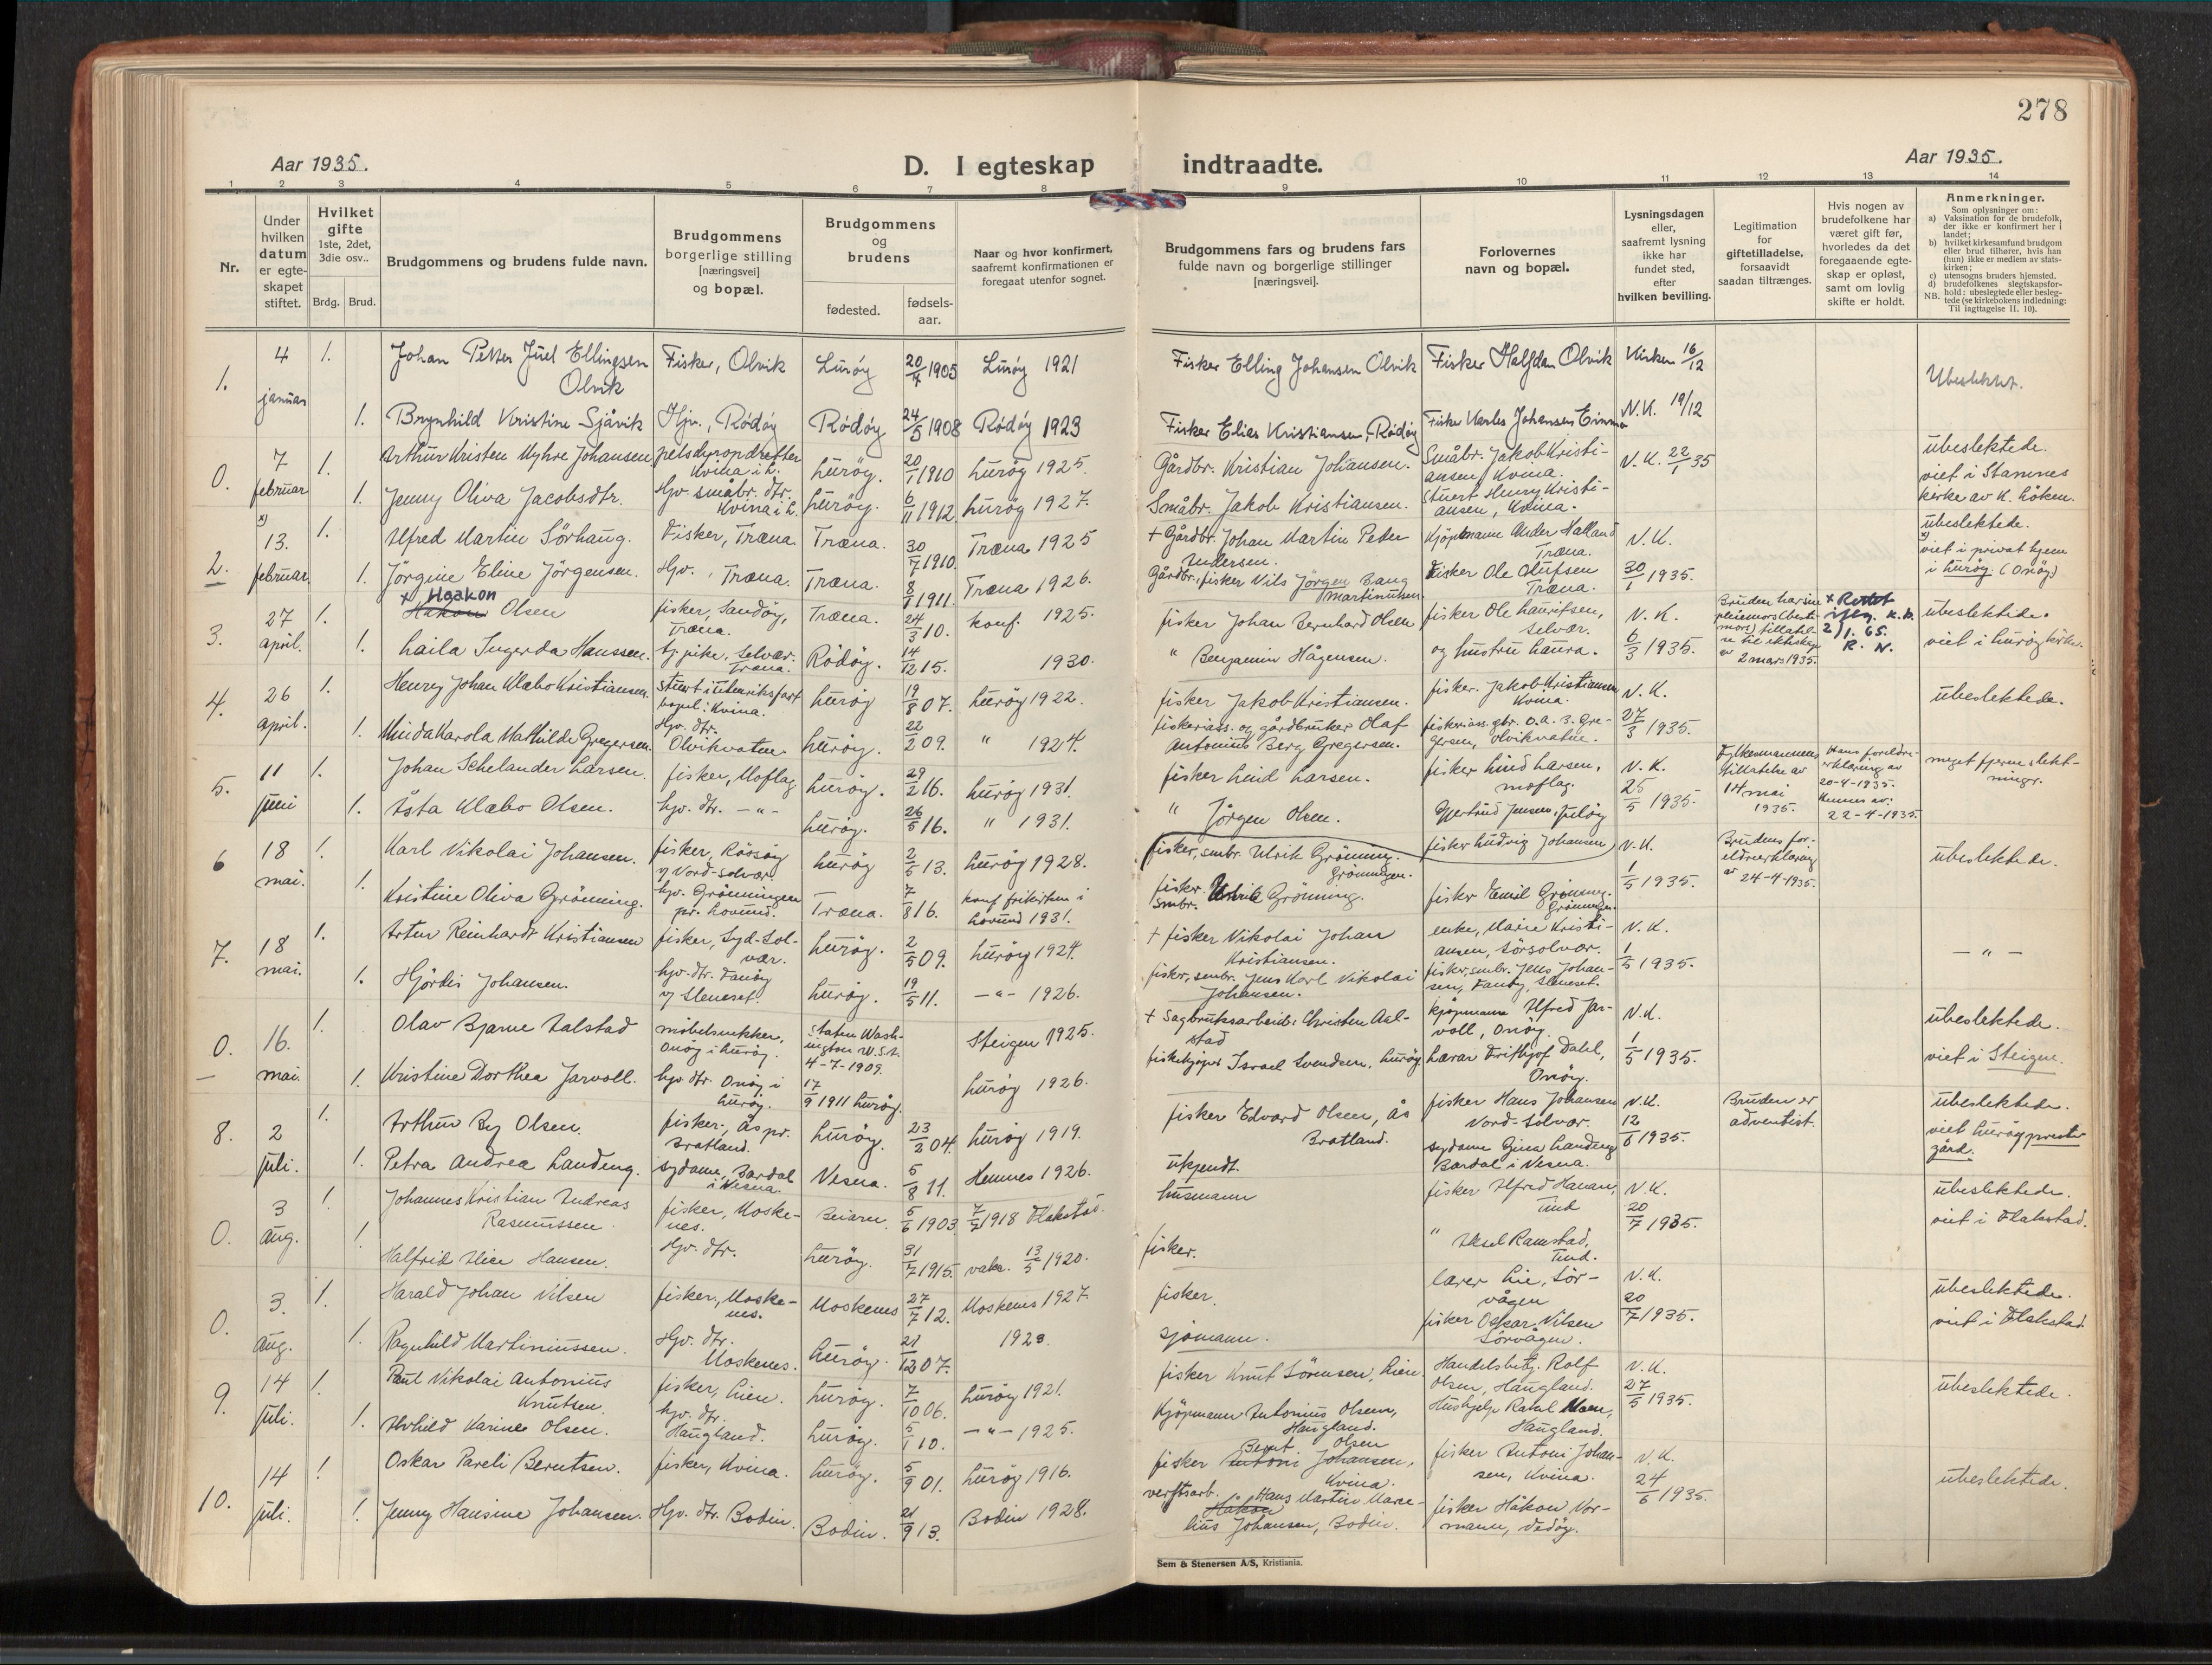 278
Aar 1935.
D. I egteskap indtraadte.
Aar 1935.
1 2 3 4 5 6 7 8 9 10 11 12 13 14
Nr.
Under hvilken datum er egteskapet stiftet.
Hvilket gifte 1ste, 2det, 3die osv..
Brdg. Brud.
Brudgommens og brudens fulde navn.
Brudgommens borgerlige stilling [næringsvei] og bopæl.
Brudgommens og brudens
fødested.
fødsels-aar.
Naar og hvor konfirmert, saafremt konfirmationen er foregaat utenfor sognet.
Brudgommens fars og brudens fars fulde navn og borgerlige stillinger [næringsvei].
Forlovernes navn og bopæl.
Lysningsdagen eller, saafremt lysning ikke har fundet sted, efter hvilken bevilling.
Legitimation for giftetilladelse, forsaavidt saadan tiltrænges.
Hvis nogen av brudefolkene har været gift før, hvorledes da det foregaaende egteskap er opløst, samt om lovlig skifte er holdt.
Anmerkninger.
Som oplysninger om:
a) Vaksination for de brudefolk, der ikke er konfirmert her i landet;
b) hvilket kirkesamfund brudgom eller brud tilhører, hvis han (hun) ikke er medlem av statskirken;
c) utensogns bruders hjemsted.
d) brudefolkenes slegtskapsforhold: ubeslegtede eller beslegtede (se kirkebokens indledning:
NB. Til iagttagelse II. 10).
1. 4 januar 1. Johan Petter Juel Ellingsen Olvik Fisker, Olvik Lurøy 20/4 1905 Lurøy 1921 Fisker Elling Johansen Olvik Fisker Halfdan Olvik Kirken 16/12 Ubeslektet.
1. Brynhild Kristine Sjåvik Hjv., Rødøy Rødøy 24/5 1908 Rødøy 1923 Fisker Elias Kristiansen, Rødøy Fisker Karles Johansen N.K. 19/12
0. 7 februar 1. Arthur Kristen Myhre Johansen pelsdyropdretter Kvina i L. Lurøy. 20/1 1910 Lurøy 1925. Gårdbr. Kristian Johansen. Småbr. Jakob Kristiansen, Kvina. N.K. 22/1 35 ubeslektede.
1. Jenny Oliva Jacobsdtr. Hjv. småbr. dtr. Kvina i L. Lurøy. 6/11 1912. Lurøy 1927. Småbr. Jakob Kristiansen. Stuert Henry Kristiansen, Kvina. viet i Stamnes kirke av K. Løken.
2. x) 13. februar. 1. Alfred Martin Sørhaug. Fisker, Træna. Træna. 30/7 1910. Træna 1925 + Gårdbr. Johan Martin Peder Andersen. Kjøpmann Ander Halland Træna. N.K. ubeslektede.
1. Jørgine Eline Jørgensen. Hjv., Træna. Træna. 8/1 1911. Træna 1926. Gårdbr., fisker Nils Jørgen Bang Martinussen Fisker Ole Olufsen Træna. 30/1 1935. x) viet i privat hjem i Lurøy. (Onøy)
3. 27 april. 1. x Haakon Håkon Olsen fisker, Sandøy, Træna. Træna. 24/3 10. konf. 1925. fisker Johan Bernhard Olsen fisker Ole Lauritsen, Selvær. N.K. x Rettet iflg. K.D. 2/1. 65. R. N. ubeslektede.
1. Laila Ingerda Hanssen. tj. pike, Selvær. Træna. Rødøy. 14/12 15. 1930. " Benjamin Hågensen. og hustru Laura. 6/3 1935. 2 mars 1935. viet i Lurøy kirke.
4. 26 april. 1. Henry Johan Klæbo Kristiansen. stuert i utenriksfart bopel: Kvina. Lurøy 19/8 07. Lurøy 1922. fisker Jakob Kristiansen. fisker. Jakob Kristiansen Kvina. N.K. ubeslektede.
1. Minda Karola Mathilde Gregersen. Hjv. dtr. Olvikvatne. Lurøy. 22/2 09. " 1924. fiskeriass. og gårdbruker Olaf Antonius Berg Gregersen. fiskeriass. gbr. O.A. B. Gregersen, Olvikvatne. 27/3 1935.
5. 11 juni 1. Johan Schelander Larsen. fisker, Moflag Lurøy. 29/2 16. Lurøy 1931. fisker Leind Larsen. fisker Lind Larsen, moflag. N.K. Fylkesmannens tillatelse av 14 mai 1935. Hans foreldreerklæring av 20-4-1935. meget fjerne slektninger.
1. Åsta Klæbo Olsen. hjv. dtr. -"- Lurøy. 26/5 16. " 1931. " Jørgen Olsen. Gjertrud Jensen, 25/5 1935. Hennes av: 22-4-1935.
6 18 mai. 1. Karl Nikolai Johansen. fisker, Røssøy v/ Nord-Solvær. Lurøy 2/5 13. Lurøy 1928. fisker, smbr. Ulrik Grønning. Grønningen. fisker Ludvig Johansen N.K. Brudens foreldreerklæring av 24-4-1935. ubeslektede.
1. Kristine Oliva Grønning. hjv. Grønningen pr. Lovund. Træna. 7/8 16. konf frikirken i Lovund 1931. fisker. smbr. Ulrik Grønning. fisker Emil Grønning. Grønningen. 1/5 1935.
7. 18 mai. 1. Artur Reinhardt Kristiansen fisker, Syd-Solvær. Lurøy. 2/5 09. Lurøy 1924. + fisker Nikolai Johan Kristiansen. enke, Marie Kristiansen, Sørsolvær. N.K. -"-
1. Hjørdis Johansen. hjv. dtr. Fanøy v/ Sleneset. Lurøy. 19/5 11. -"- 1926. fisker, smbr. Jens Karl Nikolai Johansen. fisker, smbr. Jens Johansen, Fanøy, Sleneset. 1/5 1935.
0. 16. mai. 1. Olav Bjarne Aalstad møbelsnekker, Onøy i Lurøy. Staten Washington U.S.A. 4-7-1909. Steigen 1925. + Sagbruksarbeid. Christen Aalstad kjøpmann Alfred Jarvoll, Onøy. N.K. ubeslektede.
1. Kristine Dorthea Jarvoll. hjv. dtr. Onøy i Lurøy. 17/9 1911 Lurøy. Lurøy 1926. fiskekjøper Israel Svendsen, Lurøy Lærer Frithjof Dahl, Onøy. 1/5 1935. viet i Steigen.
8. 2 juli. 1. Arthur By Olsen. fisker, Ås pr. Bratland. Lurøy. 23/2 04. Lurøy 1919. fisker Edvard Olsen, Ås Bratland. fisker Hans Johansen Nord-Solvær. N.K. Bruden er adventist. ubeslektede.
1. Petra Andrea Landeng. sydame, Bardal i Nesna. Nesna. 5/8 11. Hemnes 1926. ukjendt. sydame Gjina Landeng Bardal i Nesna. 12/6 1935. viet Lurøy prestegård.
0. 3 aug. 1. Johannes Kristian Andreas Rasmussen. fisker, Moskenes. Beiarn. 5/6 1903 7/7 1918 Flakstad. husmann fisker Alfred Hanan, Tind N.K. ubeslektede.
1. Halfrid Alice Hansen. Hjv. dtr. Lurøy. 31/7 1915. vaks. 13/5 1920. fisker. " Aksel Ramstad, Tind. 20/7 1935. viet i Flakstad.
0. 3. aug. 1. Harald Johan Nilsen fisker, Moskenes. Moskenes 27/7 12. Moskenes 1927. fisker. lærer Lie, Sørvågen N.K. ubeslektede.
1. Ragnhild Martiniussen. Hjv. dtr. Moskenes. Lurøy. 21/12 07. 1923. sjømann. fisker Oskar Nilsen Sørvågen. 20/7 1935. viet i Flakstad.
9. 14 juli. 1. Paul Nikolai Antonius Knutsen. fisker, Lien. Lurøy. 7/10 06. Lurøy 1921. fisker Knut Sørensen, Lien. Handelsbetj. Rolf Olsen, Haugland. N.K. ubeslektede.
1. Alvhild Karine Olsen. hjv. dtr. Haugland. Lurøy. 5/1 10. -"- 1925. Kjøpmann Antonius Olsen, Haugland. Hushjelp Rakel Moen, Haugland. 27/5 1935.
10. 14 juli. 1. Oskar Pareli Berntsen. fisker, Kvina. Lurøy. 5/9 01. Lurøy 1916. fisker Bernt Olsen Antoni Johansen, Kvina. fisker Antoni Johansen, Kvina. N.K. ubeslektede.
1. Jenny Hansine Johansen. Hjv. dtr. Bodin. Bodin. 21/9 13. Bodin 1928. verftsarb. Håkon Hans Martin Marcelius Johansen, Bodin. fisker Håkon Normann, Vedøy. 24/6 1935.
Sem & Stenersen A/S, Kristiania.